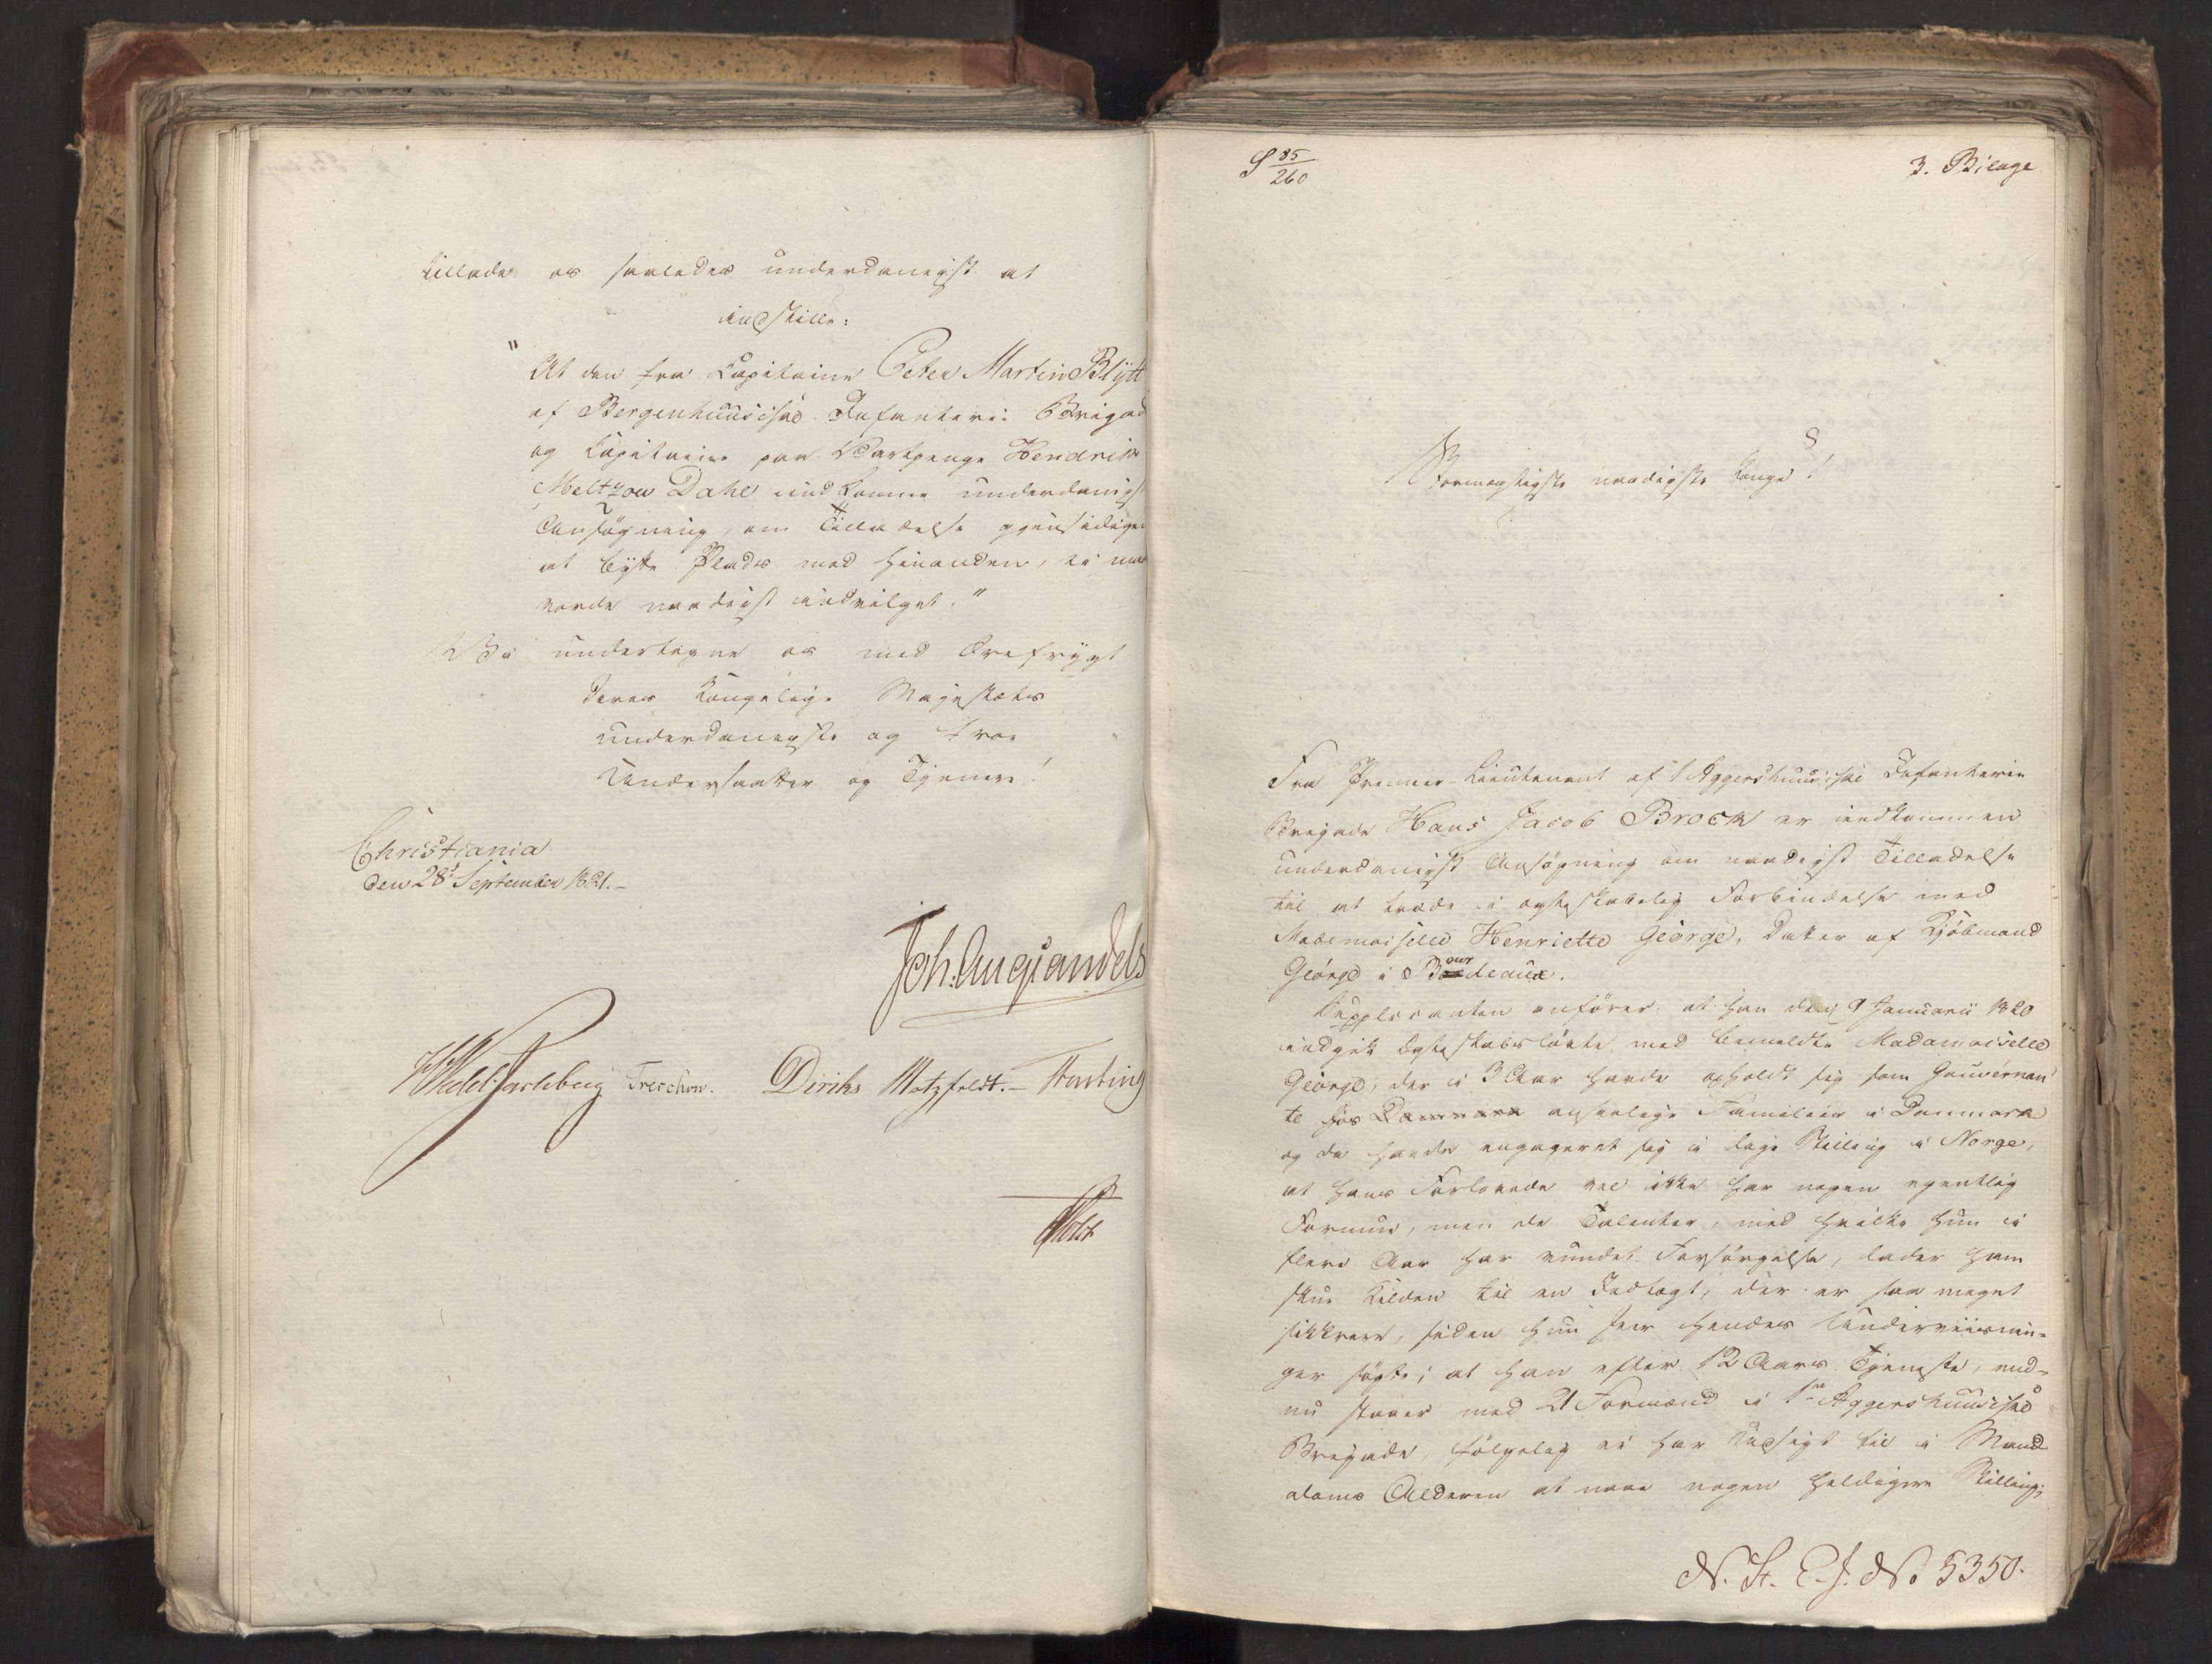 tillade os saaledes underdanigst at
indstille:
"At den fra Capitaine Peter Martin Blytt
af Bergenhuusiske Infanterie Brigade
og Capitaine paa Vartpenge Hendrik
Meltzow Dahl indkomne underdanigst
Ansøgning, om Tilladelse gjensidigen
at bytte Plads med hinanden, ei maa
vorde naadigst indvilget."
Vi undertegne os med Ærefrygt
Deres Kongelige Majestæts
underdanigste og troe
Undersaatter og Tjenere!
Christiania
den 28d September 1821.-
Joh: Aug: Sandels
HWedel Jarlsberg Treschow. Diriks Motzfeldt.- Harting
Holst
S 85/260
3. Bilage
Stormægtigste naadigste Konge!
Fra Premier-Lieutenant af 1 Aggershuusiske Infanterie
Brigade Hans Jacob Brock er indkommen
underdanigst Ansøgning om naadigst Tilladelse
til at træde i ægteskabelig Forbindelse med
Mademoiselle Henriette George, Datter af Kjöbmand
George i Bourdeaux.
Supplicanten anförer: at han den 9 Januarii 1820
indgik Ægteskabslöfte med bemeldte Madamoiselle
George, der i 3 Aar havde opholdt sig som Gouvernan
te hos Danmark anseelige Familier i Danmark
og da havde engageret sig i lige Stilling i Norge,
at hans Forlovede vel ikke har nogen egentlig
Formue, men de Talenter, med hvilke hun i
flere Aar har vundet Forsörgelse, lader ham
skue Kilden til en Indtægt, der er saa meget
sikkrere, siden hun seer hendes Underviisnin-
ger søgte; at han efter 12 Aars Tjeneste, end-
nu staaer med 21 Formænd i 1ste Aggershuusiske
Brigade, fölgelig ei har Udsigt til i Mand
doms Alderen at naae nogen heldigere Stilling;
N. St. E. J. No 5350.